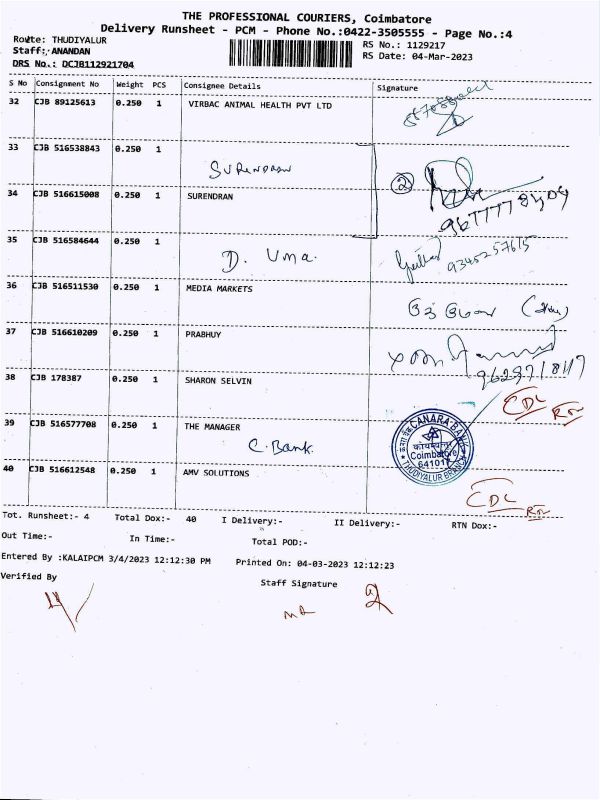 THE PROFESSIONAL COURIERS, Coimbatore
Delivery Runsheet - PCM - Phone No.:0422-3505555 - Page No.:4
Route: THUDIYALUR
RS No.: 1129217
Staff: ANANDAN
RS Date: 04-Mar-2023
DRS No.: DCJB112921704
S No Consignment No Weight PCS Consignee Details Signature
32 CJB 89125613 0.250 1 VIRBAC ANIMAL HEALTH PVT LTD
33 CJB 516538843 0.250 1
Surendran
34 CJB 516615008 0.250 1 SURENDRAN
2
35 CJB 516584644 0.250 1
D. Uma.
9345257615
36 CJB 516511530 0.250 1 MEDIA MARKETS
37 CJB 516610209 0.250 1 PRABHUY
38 CJB 178387 0.250 1 SHARON SELVIN
CDL RTN
39 CJB 516577708 0.250 1 THE MANAGER
C. Bank.
CANARA BANK
Coimbatore
641017
THUDIYALUR BRANCH
40 CJB 516612548 0.250 1 AMV SOLUTIONS
CDL RTN
Tot. Runsheet:- 4 Total Dox:- 40 I Delivery:- II Delivery:- RTN Dox:-
Out Time:- In Time:- Total POD:-
Entered By :KALAIPCM 3/4/2023 12:12:30 PM Printed On: 04-03-2023 12:12:23
Verified By Staff Signature